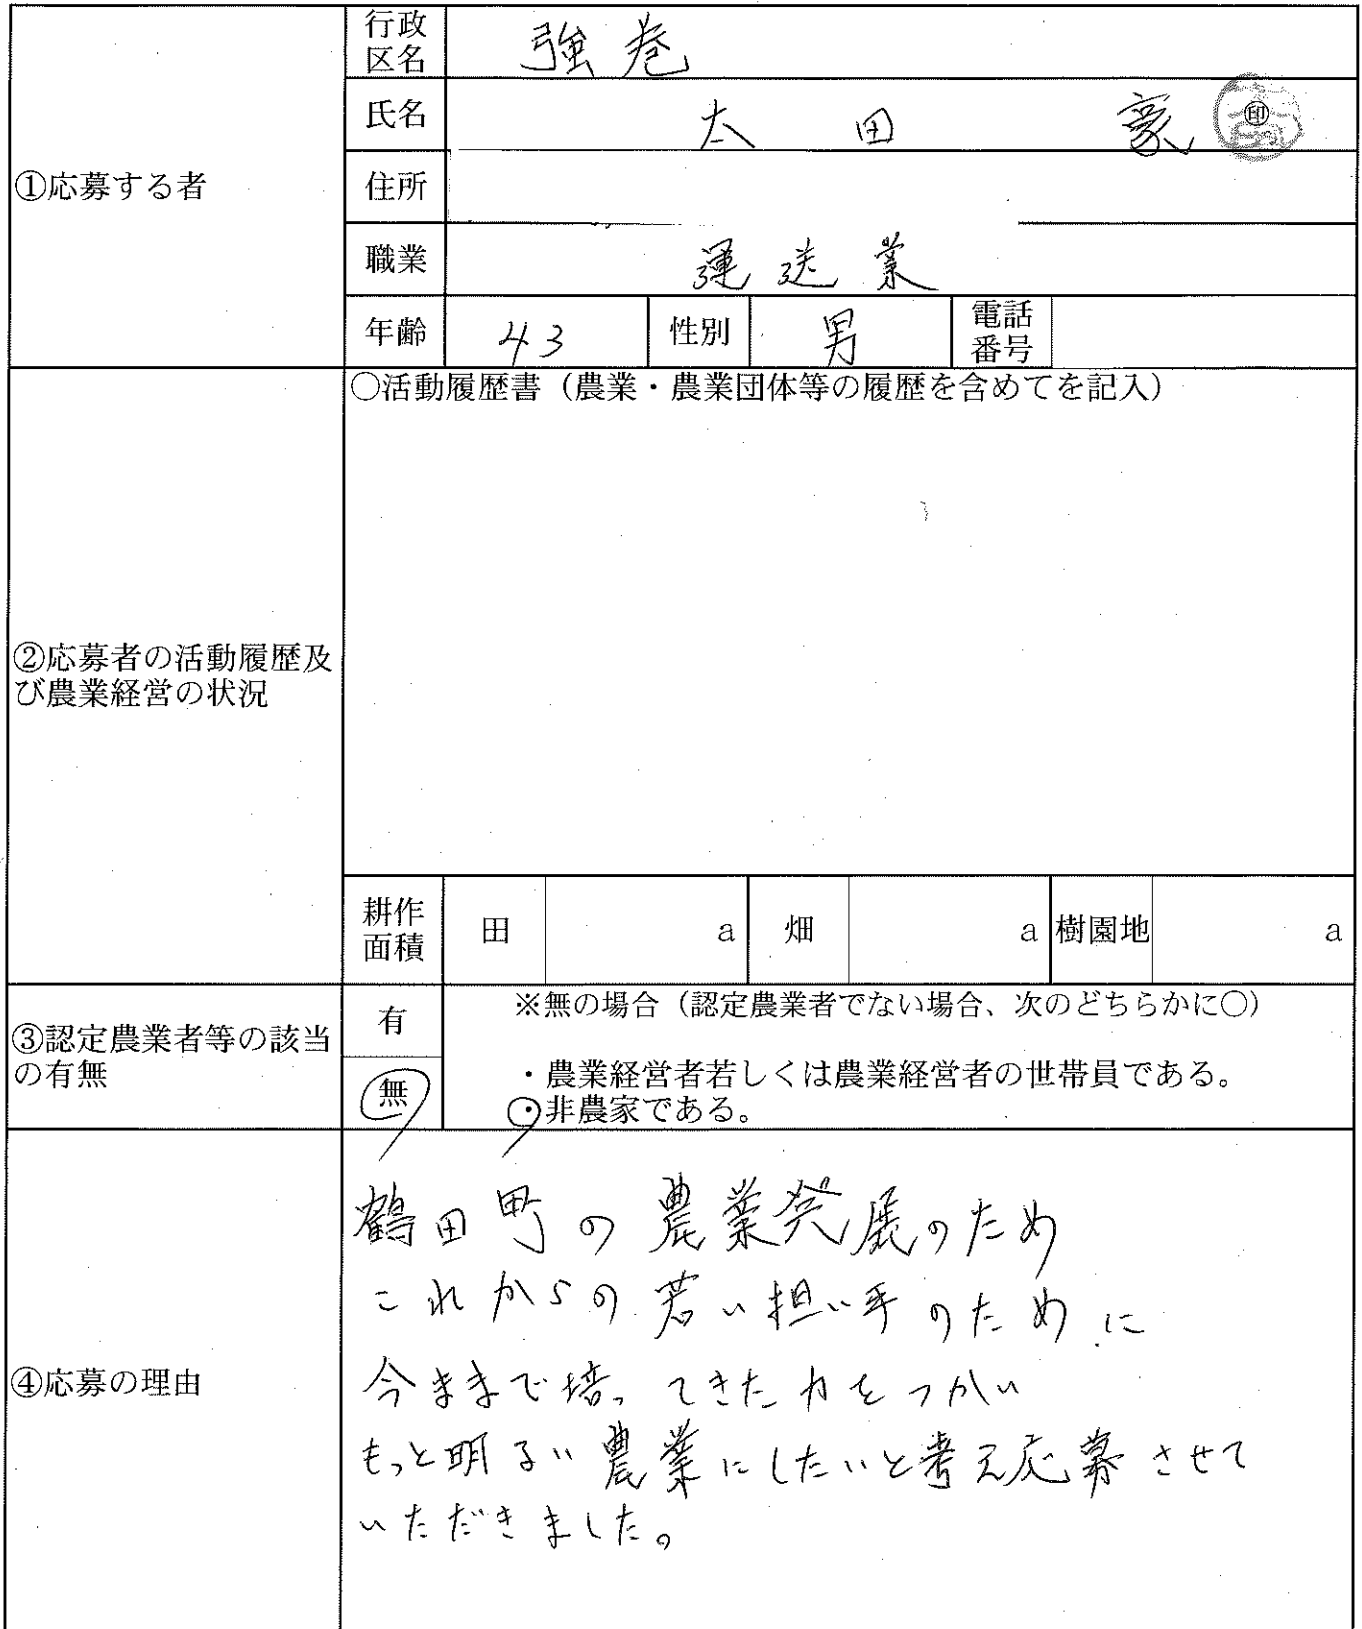 ①応募する者
行政
区名
強巻
氏名
太田 豪 ㊞
住所
職業
運送業
年齢 43 性別 男 電話
番号
②応募者の活動履歴及
び農業経営の状況
○活動履歴書（農業・農業団体等の履歴を含めてを記入）
耕作
面積
田 a 畑 a 樹園地 a
③認定農業者等の該当
の有無
有
無
※無の場合（認定農業者でない場合、次のどちらかに○）
・農業経営者若しくは農業経営者の世帯員である。
・非農家である。
④応募の理由
鶴田町の農業発展のため
これからの若い担い手のために
今まで培ってきた力をつかい
もっと明るい農業にしたいと考え応募させて
いただきました。